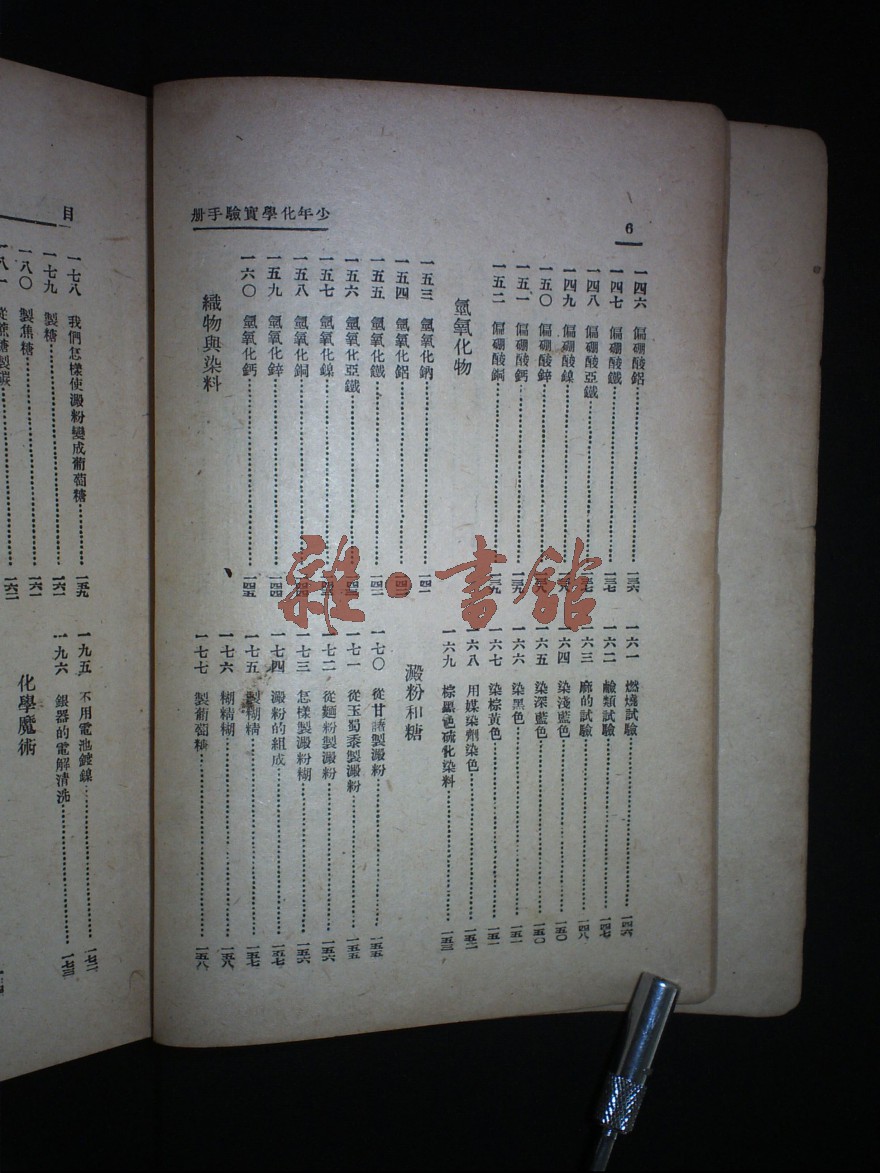 6
少年化學實驗手册
一四六 偏硼酸鋁 一三六
一四七 偏硼酸鐵 一三七
一四八 偏硼酸亞鐵 一三七
一四九 偏硼酸鎳 一三八
一五〇 偏硼酸鋅 一三八
一五一 偏硼酸鈣 一三九
一五二 偏硼酸銅 一三九
氫氧化物
一五三 氫氧化鈉 一四一
一五四 氫氧化鋁
一五五 氫氧化鐵 一四二
一五六 氫氧化亞鐵
一五七 氫氧化鎳
一五八 氫氧化銅
一五九 氫氧化鋅 一四四
一六〇 氫氧化鈣 一四五
織物與染料
一六一 燃燒試驗 一四六
一六二 鹼類試驗 一四七
一六三 麻的試驗 一四八
一六四 染淺藍色 一五〇
一六五 染深藍色 一五〇
一六六 染黑色 一五一
一六七 染棕黃色 一五一
一六八 用媒染劑染色 一五二
一六九 棕黑色硫化染料 一五三
澱粉和糖
一七〇 從甘藷製澱粉 一五五
一七一 從玉蜀黍製澱粉 一五五
一七二 從麵粉製澱粉 一五六
一七三 怎樣製澱粉糊 一五六
一七四 澱粉的組成 一五七
一七五 製糊精 一五七
一七六 糊精糊 一五八
一七七 製葡萄糖 一五八
目
一七八 我們怎樣使澱粉變成葡萄糖 一五九
一七九 製糖 一六一
一八〇 製焦糖 一六一
一八一 從蔗糖製碳 一六二
一九五 不用電池鍍鎳 一七二
一九六 銀器的電解清洗 一七三
化學魔術
雜·書館